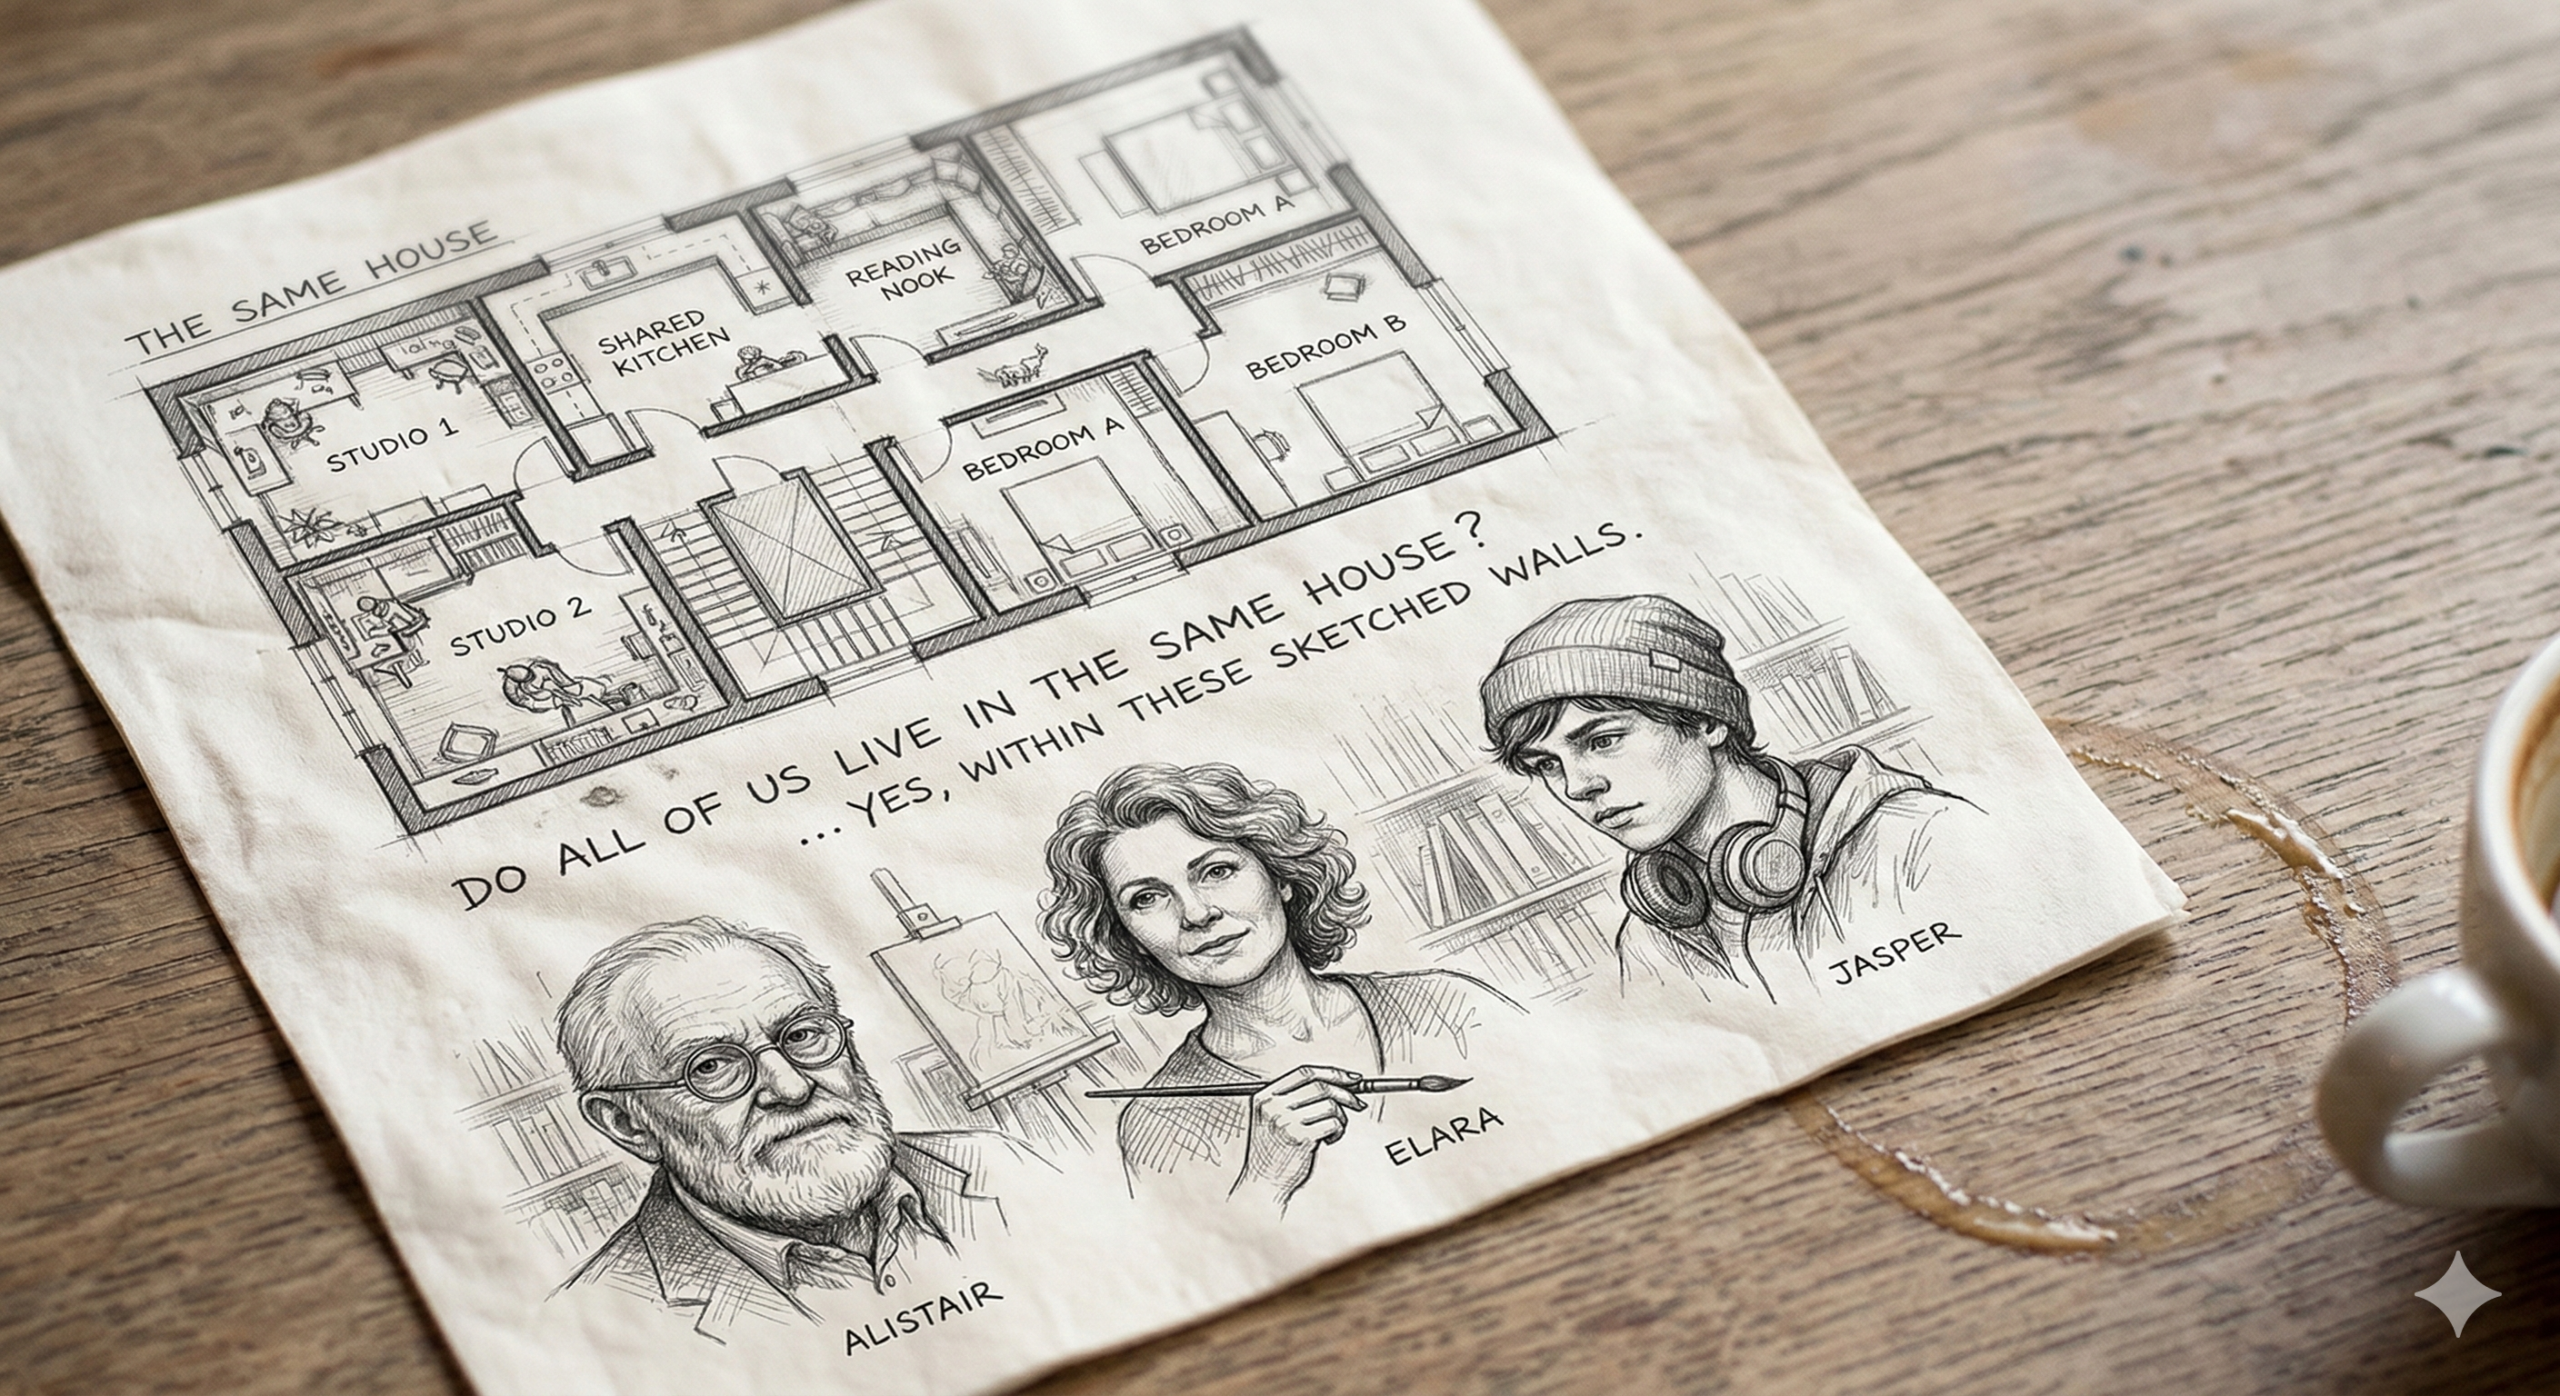 THE SAME HOUSE
STUDIO 1
SHARED
KITCHEN
READING
NOOK
BEDROOM A
BEDROOM B
BEDROOM A
STUDIO 2
DO ALL OF US LIVE IN THE SAME HOUSE?
... YES, WITHIN THESE SKETCHED WALLS.
ALISTAIR
ELARA
JASPER